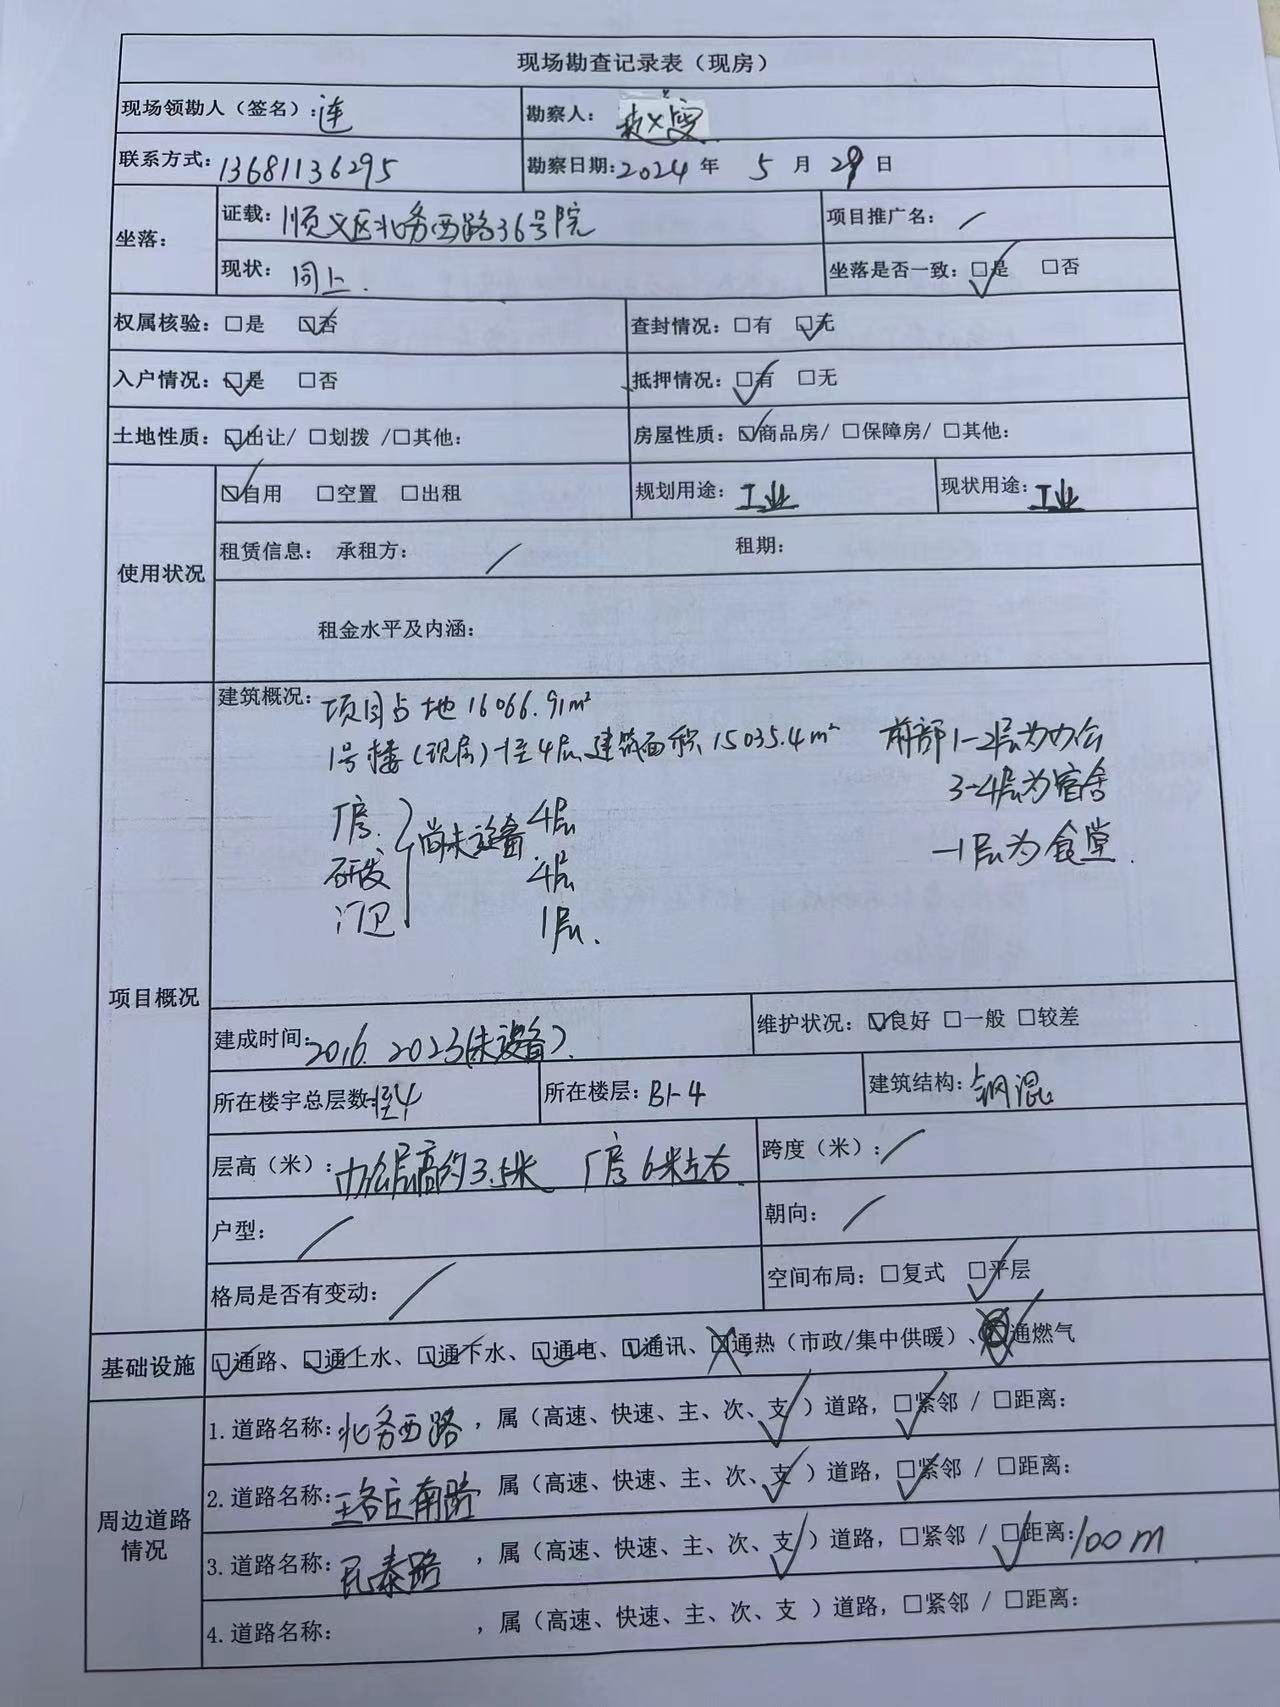 现场勘查记录表（现房）
现场领勘人（签名）: 连 勘察人:
联系方式: 13681136295 勘察日期: 2024 年 5 月 29 日
坐落: 证载: 顺义区北务西路36号院 项目推广名: /
现状: 同上. 坐落是否一致: ☑是 □否
权属核验: □是 ☑否 查封情况: □有 ☑无
入户情况: ☑是 □否 抵押情况: ☑有 □无
土地性质: ☑出让/ □划拨 /□其他: 房屋性质: ☑商品房/ □保障房/ □其他:
使用状况 ☑自用 □空置 □出租 规划用途: 工业 现状用途: 工业
租赁信息: 承租方: / 租期:
租金水平及内涵:
项目概况 建筑概况: 项目占地16066.91m²
1号楼(现房)-1至4层 建筑面积15035.4m² 前部1-2层为办公
3-4层为宿舍
-1层为食堂.
厂房. 尚未设备 4层
研发 4层
门卫 1层.
建成时间: 2016. 2023(未设备). 维护状况: ☑良好 □一般 □较差
所在楼宇总层数: -1至4 所在楼层: B1-4 建筑结构: 钢混
层高（米）: 办公层高约3.5米 厂房6米左右 跨度（米）: /
户型: / 朝向: /
格局是否有变动: / 空间布局: □复式 ☑平层
基础设施 ☑通路、☑通上水、☑通下水、☑通电、☑通讯、☒通热（市政/集中供暖）、☒通燃气
周边道路情况 1.道路名称: 北务西路 , 属（高速、快速、主、次、支✓）道路, ☑紧邻 / □距离:
2.道路名称: 王各庄南路 属（高速、快速、主、次、支✓）道路, ☑紧邻 / □距离:
3.道路名称: 民泰路 , 属（高速、快速、主、次、支✓）道路, □紧邻 / ☑距离: 100m
4.道路名称: , 属（高速、快速、主、次、支 ）道路, □紧邻 / □距离: